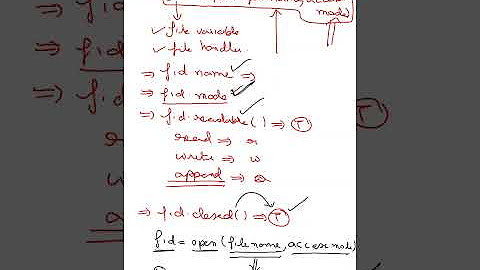 mode)
✓ file variable
✓ file handler
⇒ fid name ⇒
⇒ fid. mode
⇒ fid. readable() ⇒ T
read ⇒ r
write ⇒ w
append ⇒ a
⇒ fid. closed() ⇒ T
fid = open (file name, access mode)